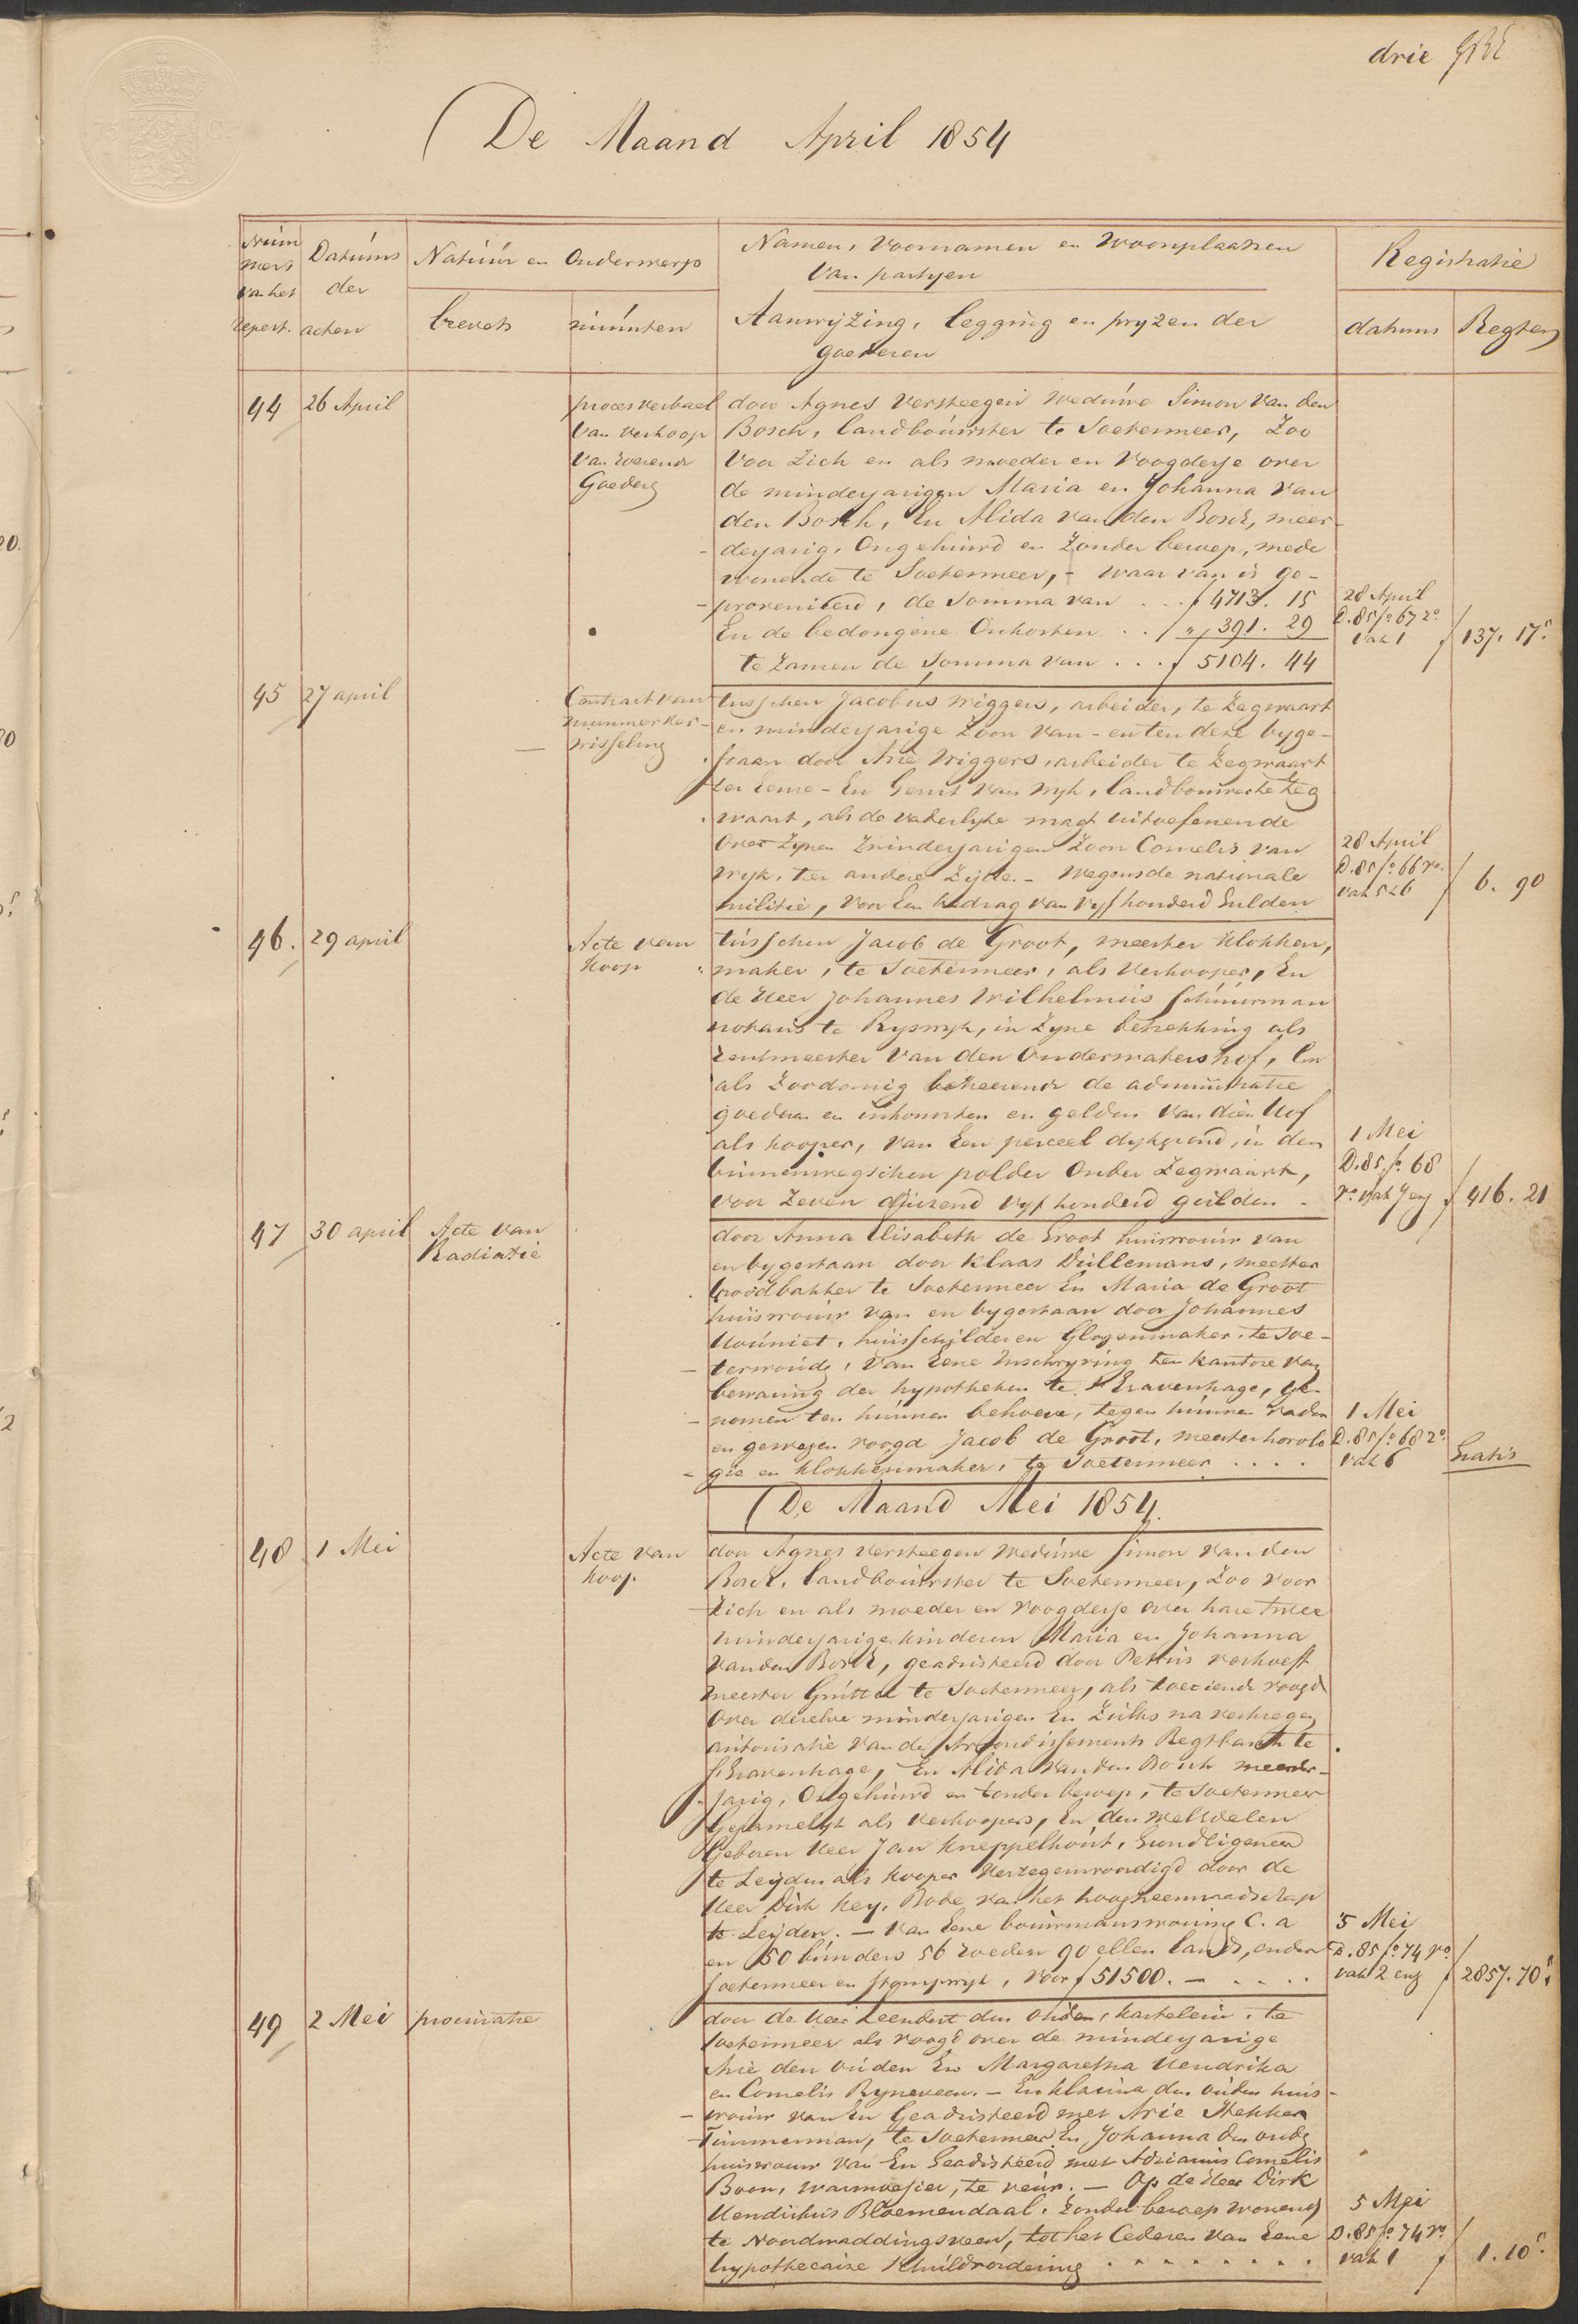 drie
De Maand April 1854
Num
mers
van het
repert.
Datums
der
acten
Natuur en Onderwerp
brevets
minuten
Namen, Voornamen en Woonplaatsen
van partyen
Aanwyzing, legging en pryzen der
goederen
Registratie
datums
Regten
44
26 April
proces verbaal
van verkoop
van roerende
Goederen
door Agnes Versteegen weduwe Simon van den
Bosch, landbouwster te Soetermeer, Zoo
voor Zich en als moeder en voogdesse over
de minderjarigen Maria en Johanna van
den Bosch, En Alida van den Bosch, meer-
-derjarig, Ongehuwd en Zonder beroep, mede
wonende te Soetermeer, - waar van is ge-
-provenieerd, de Somma van . . . f 4713. 15
En de bedongene Onkosten . . . " 391. 29
te Zamen de Somma van . . . f 5104. 44
28 April
D. 85 fo 67 ro
vak 1
f 137. 17 5
45
27 april
Contract van
nummerver-
wisseling
tusschen Jacobus Wiggers, arbeider, te Zegwaart
en minderjarige Zoon van - en ten deze byge-
staan door Arie Wiggers, arbeider te Zegwaart
ter Eenre - En Gerrit van Wyk, landbouwer te Zeg
waart, als de vaderlyke magt uitoefenende
over Zynen minderjarigen Zoon Cornelis van
Wyk, ter andere Zyde. - Wegens de nationale
militie, voor Een bedrag van vyf honderd Gulden
28 April
D. 85 fo 66 vo.
vak 5 & 6
f 6. 90
46.
29 april
Acte van
koop
tusschen Jacob de Groot, meester klokken,
maker, te Soetermeer, als Verkooper, En
de Heer Johannes Wilhelmus Schuurman
notaris te Ryswyk, in Zyne betrekking als
rentmeester van den Oudermakershof, En
als Zoodanig beheerende de administratie
goederen en inkomsten en gelden van dien Hof
als kooper, van Een perceel dykgrond, in den
binnenwegschen polder Onder Zegwaart,
voor Zeven duizend vyf honderd gulden -
1 Mei
D. 85 fo 68
ro vak 7 enz
f 416. 21
47
30 april
Acte van
Radiatie
door Anna Elisabeth de Groot huisvrouw van
en bygestaan door Klaas Dullemans, meester
broodbakker te Soetermeer En Maria de Groot
huisvrouw van en bygestaan door Johannes
Houniet, huisschilder en Glazenmaker, te Soe-
terwoude, van Eene Inschryving ten kantore van
bewaring der hypotheken te 's Gravenhage, ge-
nomen ten hunnen behoeve, tegen hunnen vader
en gewezen voogd Jacob de Groot, meester horolo
gie en klokkenmaker, te Soetermeer . . . .
1 Mei
D. 85 fo 68 ro
vak 6
Gratis
De Maand Mei 1854.
48
1 Mei
Acte van
koop.
door Agnes Versteegen weduwe Simon van den
Bosch, landbouwster te Soetermeer, Zoo voor
Zich en als moeder en voogdesse over hare twee
minderjarige kinderen Maria en Johanna
van den Bosch, geadsisteerd door Petrus Verhoeff
meester Grutter te Soetermeer, als toeziende voogd
Over dezelve minderjarigen En Zulks na verkregen
autorisatie van de Arrondissements Regtbank te
s Gravenhage, En Alida van den Bosch meerder-
jarig, Ongehuwd en Zonder beroep, te Soetermeer
Gezamelyk als verkoopers, En den Weledelen
Geboren Heer Jan Kneppelhout, Grondeigenaar
te Leyden als kooper Vertegenwoordigd door de
Heer Dirk Key, Bode van het hoogheemraadschap
te Leyden. - van Eene bouwmanswoning C. a
en 50 bunders 56 roeden 90 ellen lands, onder
Soetermeer en Stompwyk, voor f 51500. - . . . .
5 Mei
D. 85 fo 74 ro
vak 2 enz
f 2857. 70 5
49
2 Mei
procuratie
door de Heer Leendert den Ouden, kastelein, te
Soetermeer als voogd over de minderjarige
Arie den Ouden En Margaretha Hendrika
en Cornelis Ryneveen. - En Klasina den Ouden huis-
-vrouw van En Geadsisteerd met Arie Stekker
Timmerman, te Soetermeer En Johanna den Oude
huisvrouw van En Geadsisteerd met Adrianus Cornelis
Boon, warmoesier, te Veur. - Op de Heer Dirk
Hendrikus Bloemendaal, Zonder beroep wonend
te Noordwaddingsveen, tot het Cederen van Eene
hypothecaire Schuldvordering . . . . . . . .
5 Mei
D. 85 fo 74 ro
vak 1
f 1. 10 5